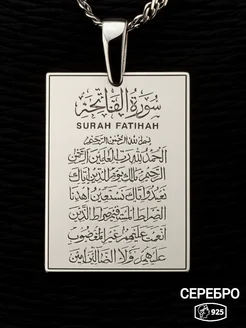 سورة الفاتحة
SURAH FATIHAH
بسم الله الرحمن الرحيم
الحمد لله رب العلمين الرحمن
الرحيم ملك يوم الدين اياك
نعبد واياك نستعين اهدنا
الصراط المستقيم صراط الذين
انعمت عليهم غير المغضوب
عليهم ولا الضالين امين
СЕРЕБРО
925